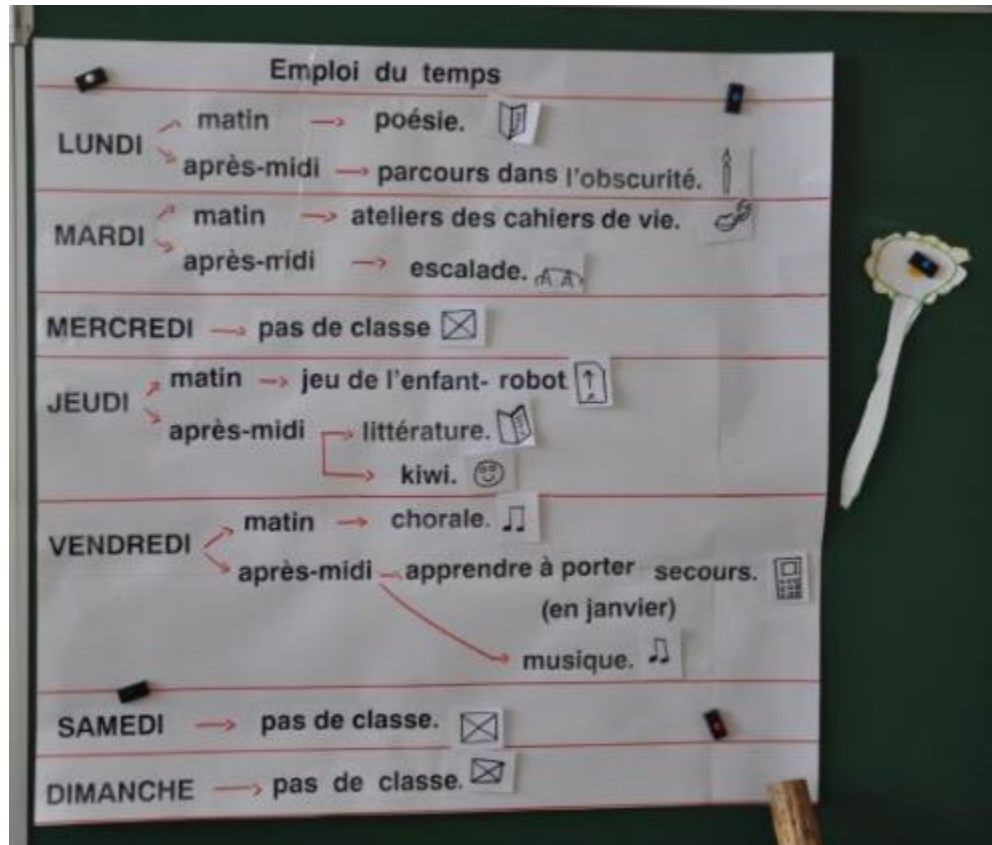 Emploi du temps
LUNDI
matin → poésie.
après-midi → parcours dans l'obscurité.
MARDI
matin → ateliers des cahiers de vie.
après-midi → escalade.
MERCREDI → pas de classe
JEUDI
matin → jeu de l'enfant- robot
après-midi → littérature.
→ kiwi.
VENDREDI
matin → chorale.
après-midi → apprendre à porter secours.
(en janvier)
→ musique.
SAMEDI → pas de classe.
DIMANCHE → pas de classe.